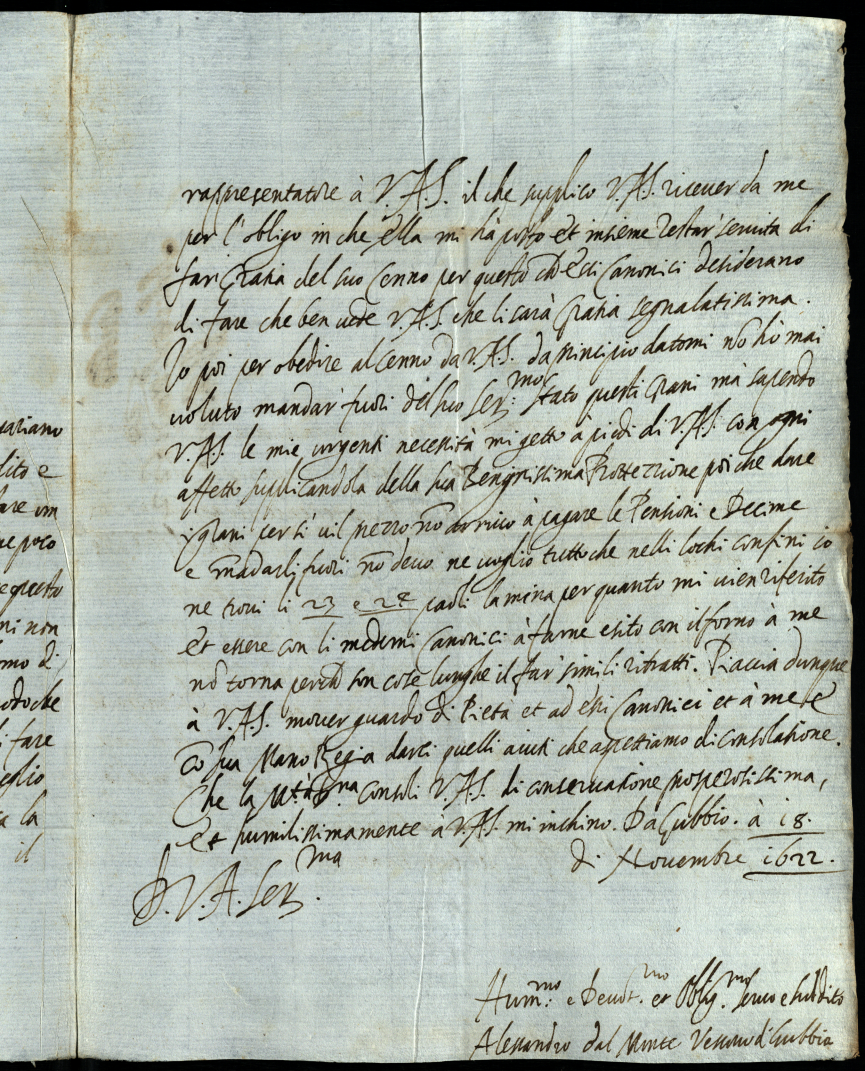 rappresentatore à V.A.S. il che supplico V.A.S. ricever da me
per l'obligo in che ella mi hà posto et insieme restar servita di
far gratia del suo Cenno per questo ch'essi Canonici desiderano
di fare che ben vede V.A.S. che li sarà gratia segnalatissima.
Io poi per obedire al cenno da V.A.S. da principio datomi nõ hò mai
voluto mandar fuori del suo Ser:mo stato questi grani mà sapendo
V.A.S. le mie urgenti necessità mi getto à piedi di V.A.S. con ogni
affetto suplicandola della sua Benignissima Prottezzione poi che dare
i grani per sì vil prezzo nõ arrivo à pagare le Pensioni e Decime
e mãdarli fuori nõ devo ne voglio tutto che nelli lochi confini io
ne trovi li 23 e 24 paoli la mina per quanto mi vien riferito
Et essere con li medemi Canonici à farne esito con il forno à me
nõ torna perchè son cose lunghe il far simili ritratti. Piaccia dunque
à V.A.S. mover guardo di Pietà et ad essi Canonici et à me e
cõ sua Mano Regia darci quelli aiuti che aspettiamo di consolatione.
Che la M.tà D.na consoli V.A.S. di conservatione prosperosissima,
Et humilissimamente à V.A.S. mi inchino. Da Gubbio. à 18.
di Novembre 1622.
D. V. A. Ser.ma
Hum:mo e Devot.mo et Oblig.mo servo e suddito
Alessandro dal Monte Vescovo d'Gubbio
uariano
dito e
are un
ne poco
questo
ni non
mo di
modo che
i fare
eglio
a la
il